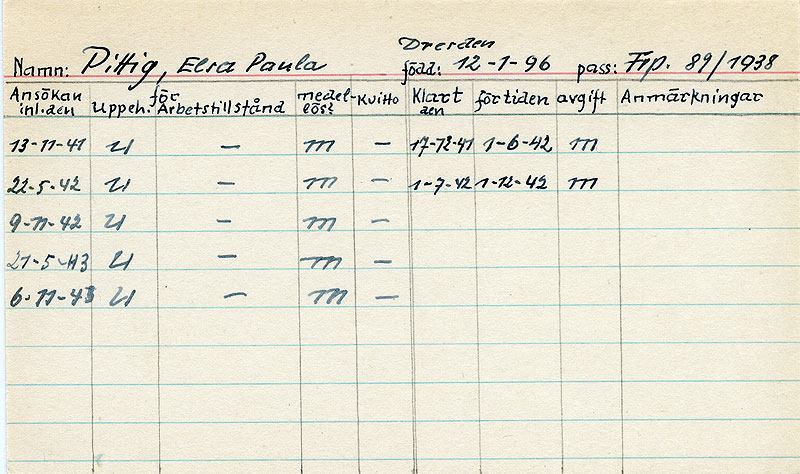 Dresden
Namn: Pittig, Elsa Paula född: 12-1-96 pass: Frp. 89/1938
Ansökan inl. den Uppeh. för Arbetstillstånd medel-löst Kvitto Klart den för tiden avgift Anmärkningar
13-11-41 U — m — 17-12-41 1-6-42 m
22-5-42 U — m — 1-7-42 1-12-42 m
9-11-42 U — m —
21-5-43 U — m —
6-11-43 U — m —